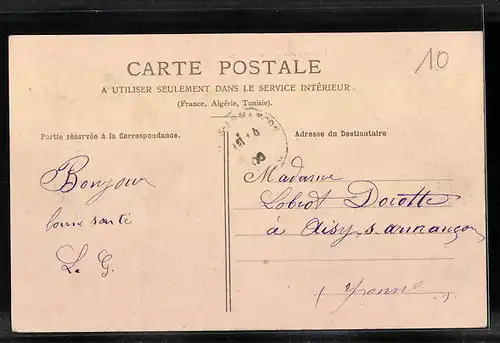 10
CARTE POSTALE
A UTILISER SEULEMENT DANS LE SERVICE INTÉRIEUR.
(France, Algérie, Tunisie).
Partie réservée à la Correspondance.
Adresse du Destinataire
Bonjour
bonne santé
L. G.
Madame
Lobrot Dorotte
à Aisy s armançon
Yonne